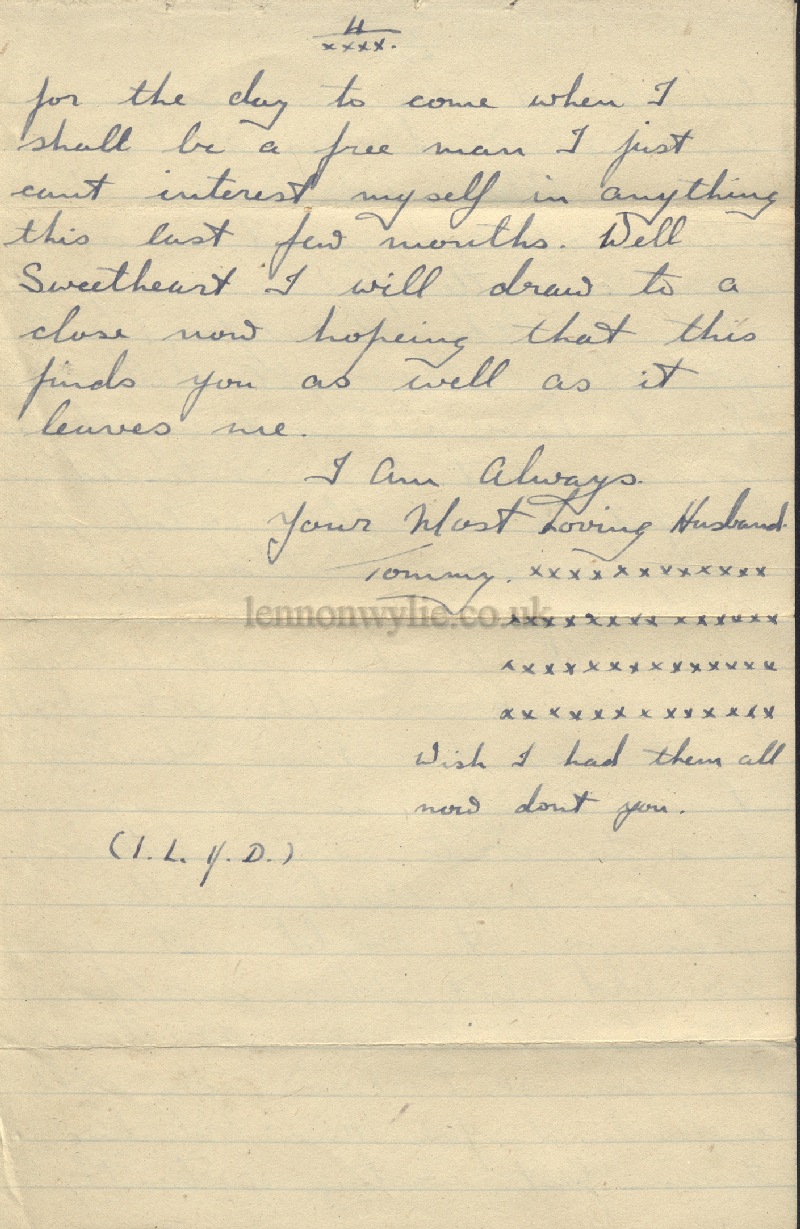 4
xxxx.
for the day to come when I
shall be a free man I just
cant interest myself in anything
this last few months. Well
Sweetheart I will draw to a
close now hopeing that this
finds you as well as it
leaves me.
I Am Always.
Your Most Loving Husband
Tommy. xxxxxxxxxxxx
lennonwylie.co.uk
xxxxxxxxxxxxxx
xxxxxxxxxxxxxx
xxxxxxxxxxxxxx
Wish I had them all
now dont you.
(I.L.Y.D.)